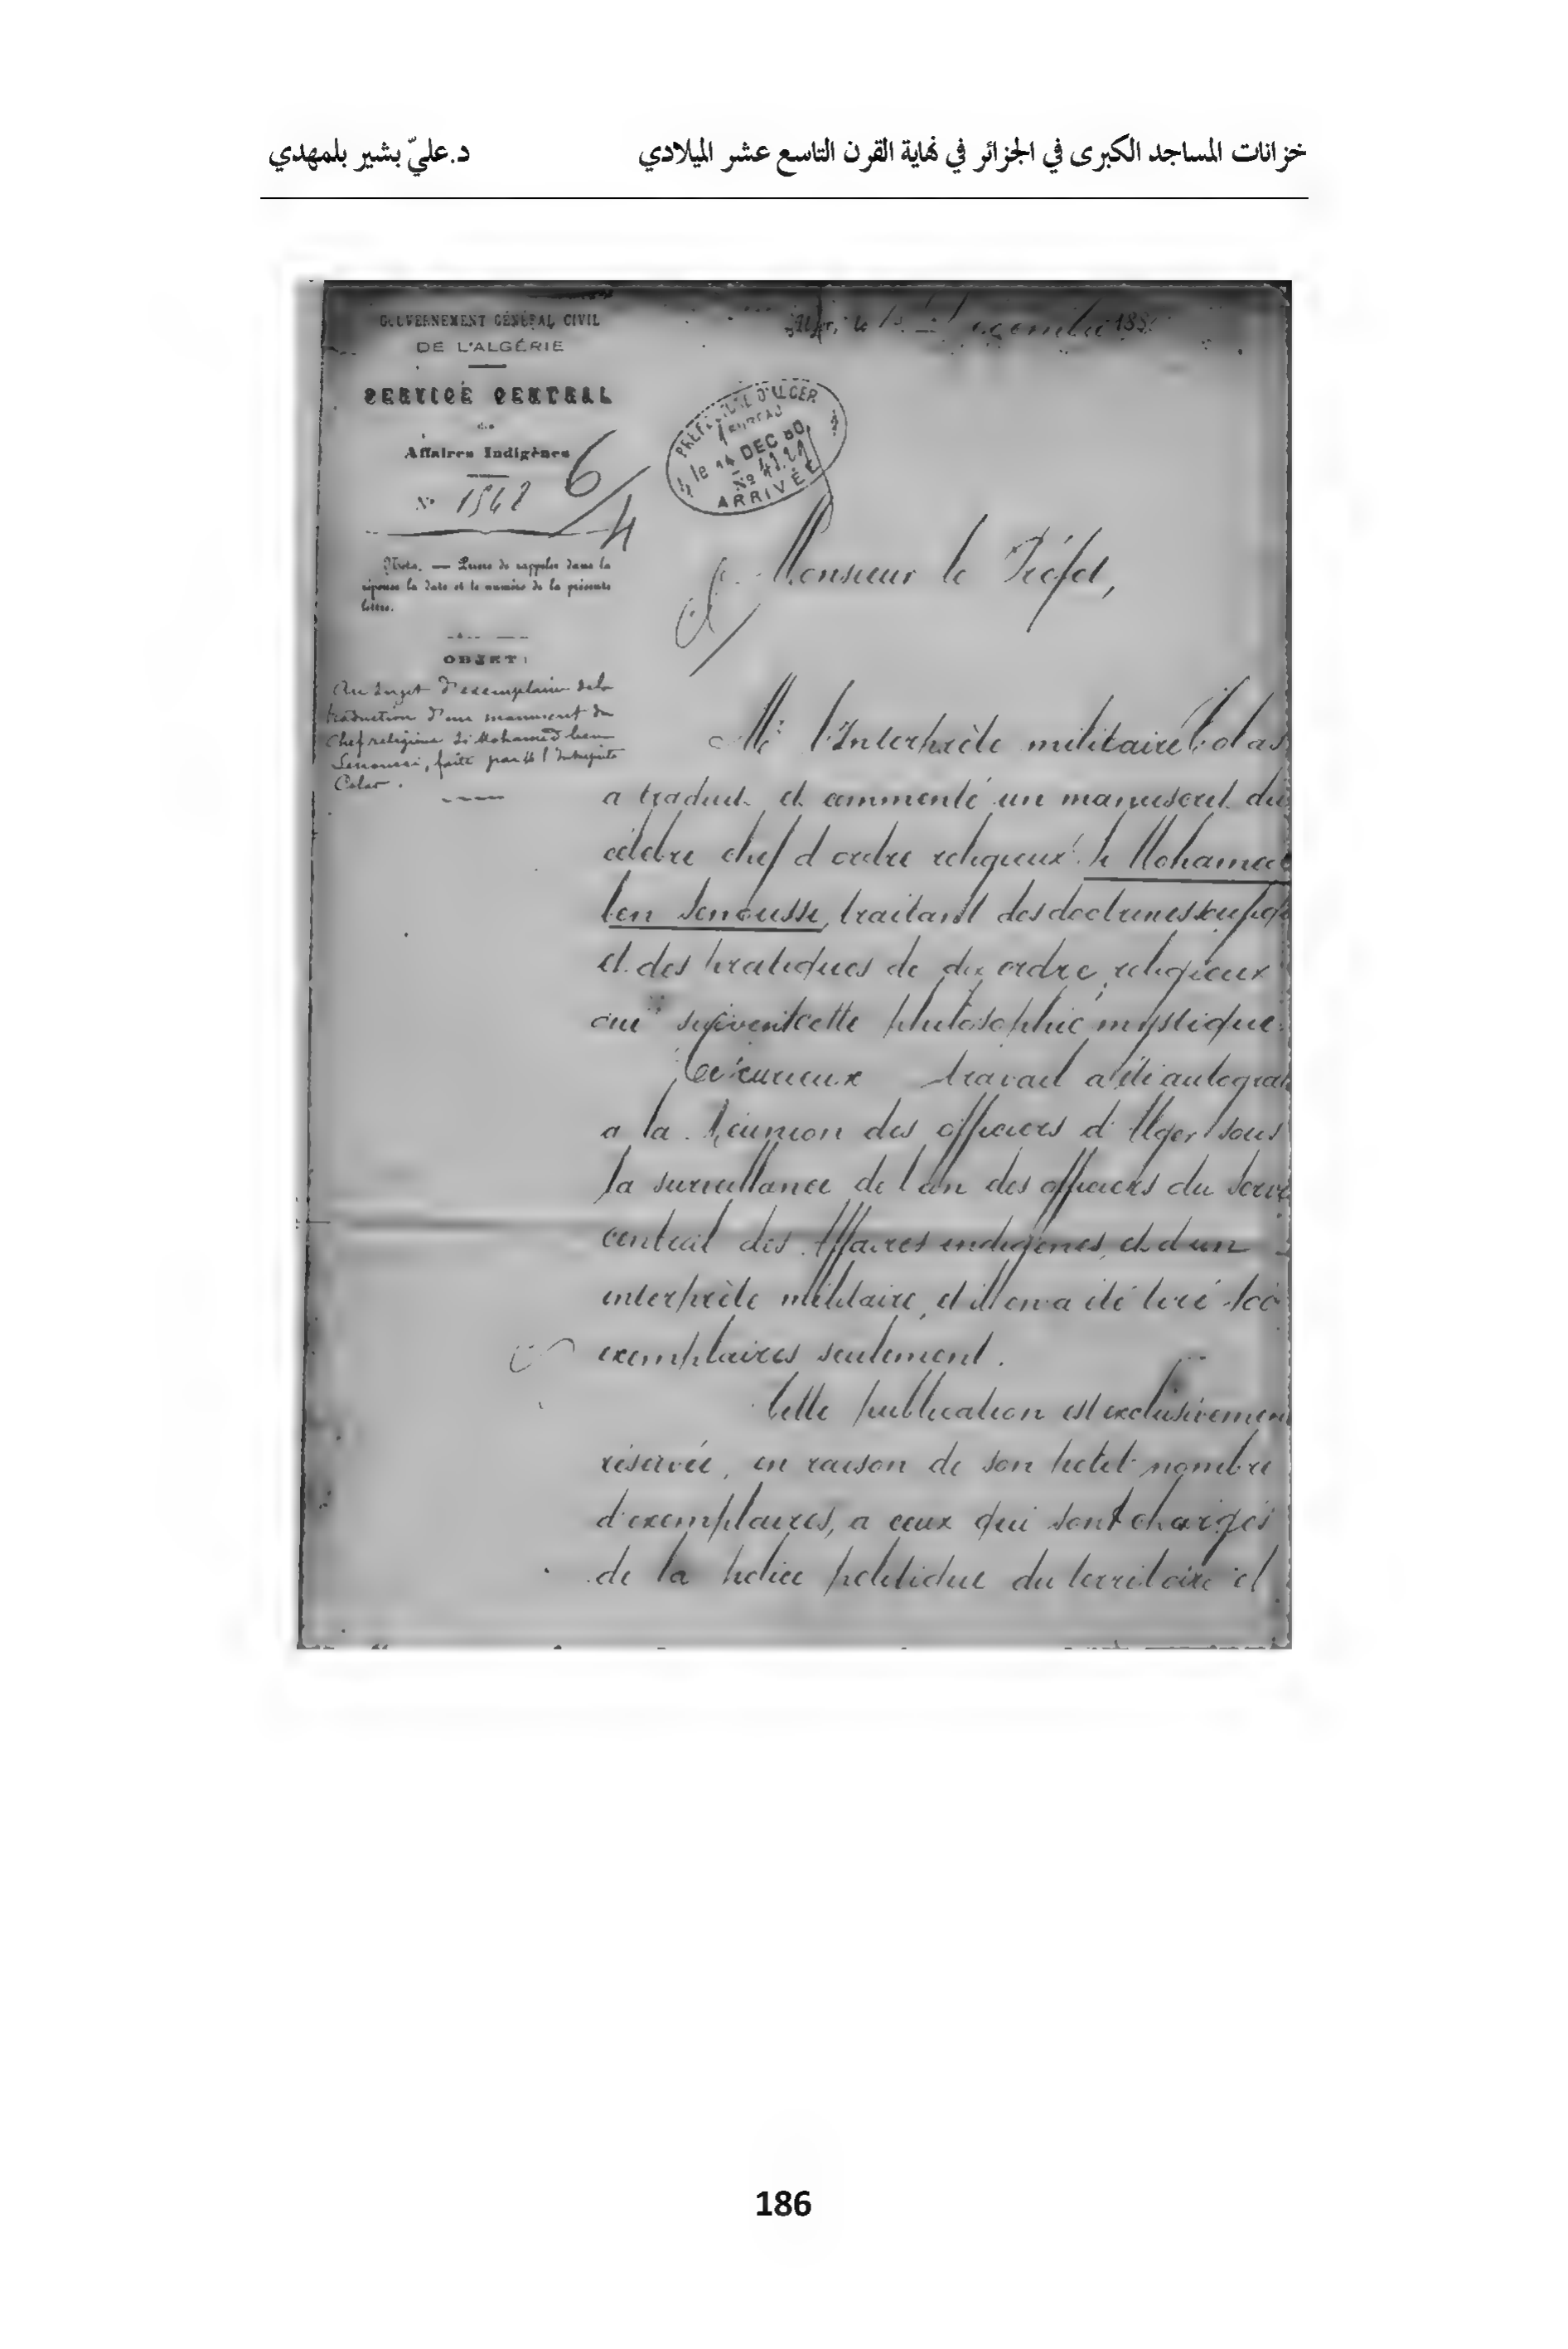 خزانات المساجد الكبرى في الجزائر في نهاية القرن التاسع عشر الميلادي
د.عليّ بشير بلمهدي
GOUVERNEMENT GÉNÉRAL CIVIL
DE L'ALGÉRIE
SERVICE CENTRAL
des
Affaires Indigènes
N° 1542
6/4
Nota. — Prière de rappeler dans la
réponse la date et le numéro de la présente
lettre.
OBJET :
Au sujet d'exemplaires de la
traduction d'un manuscrit du
Chef religieux Si Mohamed ben
Senoussi, faite par M l'Interprète
Colas.
Alger, le
PRÉFECTURE D'ALGER
BUREAU
le 14 DEC 80
ARRIVÉE
Monsieur le Préfet,
Mr l'Interprète militaire Colas
a traduit et commenté un manuscrit du
célèbre chef d'ordre religieux Si Mohamed
ben Senoussi, traitant des doctrines
et des pratiques de dix ordres religieux
qui suivent cette philosophie mystique.
Ce curieux travail a été autogra
à la Réunion des officiers d'Alger sous
la surveillance de l'un des officiers du Servi
central des Affaires indigènes, et d'un
interprète militaire, et il en a été tiré 100
exemplaires seulement.
Cette publication est exclusivement
réservée, en raison de son petit nombre
d'exemplaires, à ceux qui sont chargés
de la police politique du territoire et
186